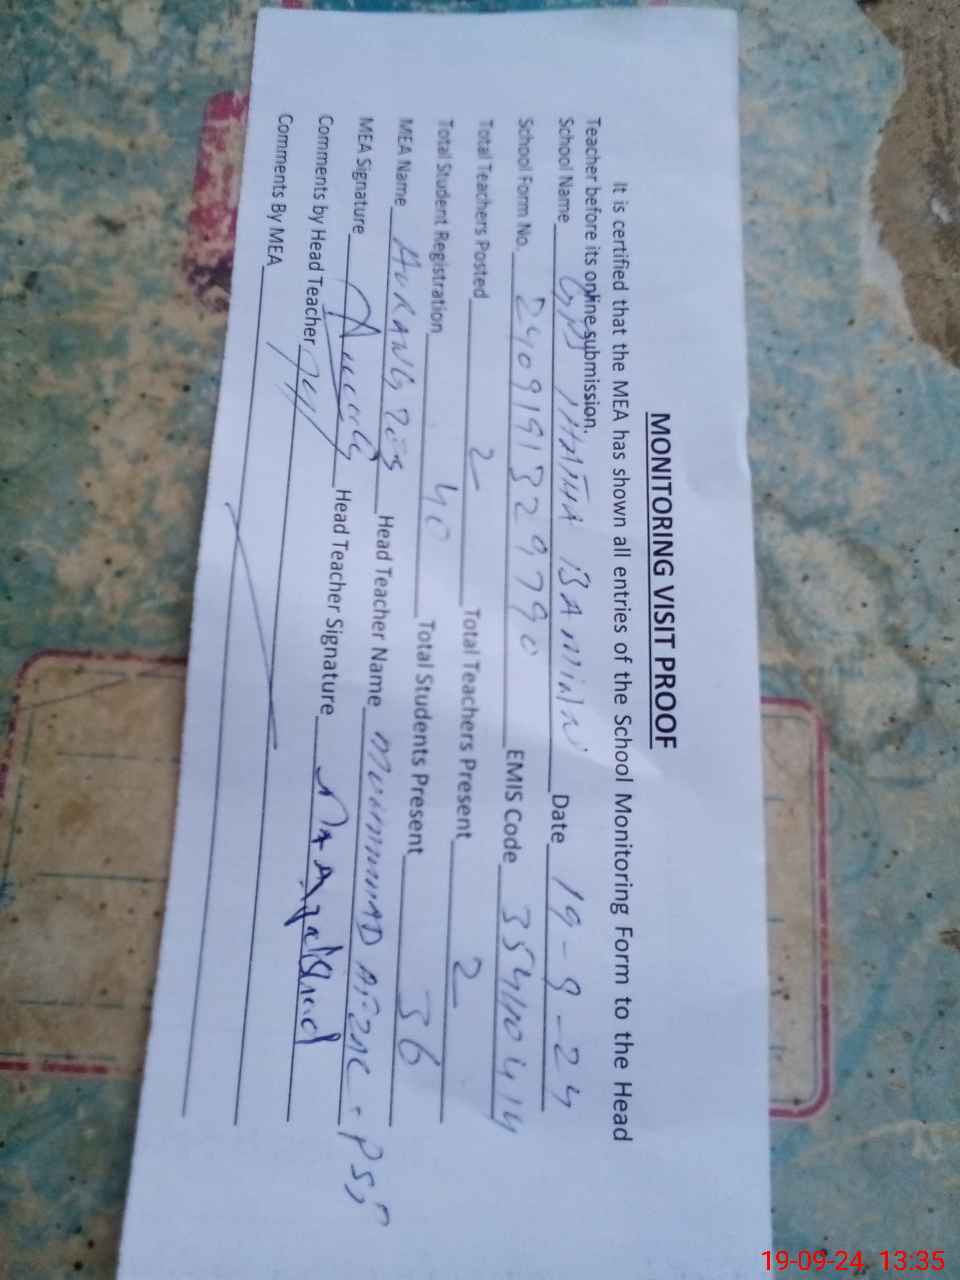 MONITORING VISIT PROOF
It is certified that the MEA has shown all entries of the School Monitoring Form to the Head
Teacher before its online submission.
School Name GPS Date 19-9-24
School Form No. 24091913297990 EMIS Code 35410414
Total Teachers Posted 2 Total Teachers Present 2
Total Student Registration 40 Total Students Present 36
MEA Name AURANG ZEB Head Teacher Name MUHAMMAD
MEA Signature Head Teacher Signature
Comments by Head Teacher
Comments By MEA
19-09-24 13:35